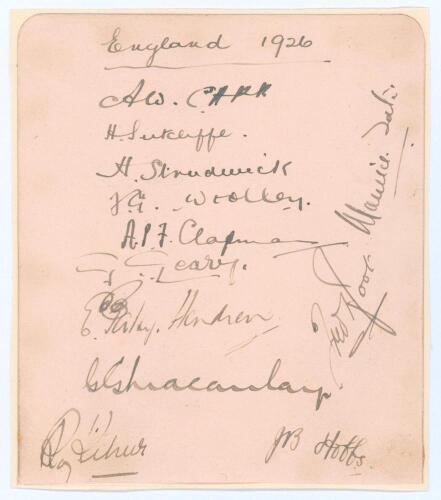 England 1926
A.W. Carr
H. Sutcliffe.
H. Strudwick
F.E. Woolley.
A.P.F. Chapman
G. Geary.
E. "Patsy" Hendren
G.G. Macaulay
Roy Kilner
J B Hobbs.
Fred Root
Maurice Tate.